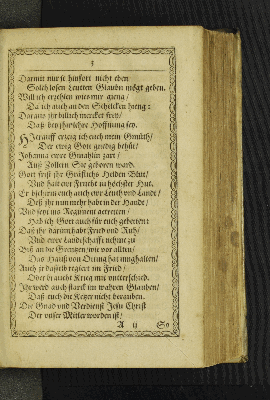 3
Darmit nur je hinfort nicht eben
Solch losen Leutten Glaubn mögt geben.
Will ich erzehlen wies mir gieng/
Da ich auch an den Schelcken hieng:
Daraus jhr billich mercket frey/
Daß bey jhr solche Hoffnung sey.
Hierauff erzeig ich euch mein Gmüth/
Der ewig Gott gnedig behüt/
Johanna ewre Gmahlin zart/
Auß Zollern Sie geboren ward.
Gott frist jhr Gräfliche Helden Blut/
Und halt ewr Frewnt zu höchster Hut.
Er hieß euch auch ewr Leuth und Landt/
Deß jhr nun mehr habt in der Handt/
Und seyt ins Regiment getretten/
Hab ich Gott auch für euch gebetten:
Daß jhr darinn habt Fried und Ruh/
Und ewre Landschafft nehme zu
Biß an die Grentzen/wie vor allten/
Das Hauß von Otting hat inghalten/
Auch je daselb regiert im Fried/
Oder braucht Krieg mit unterschied.
Jhr werd auch starck im wahren Glauben/
Daß euch die Ketzer nicht berauben.
Die Gnad und Verdienst Jesu Christ
Der unser Mitler worden ist/
A ij So